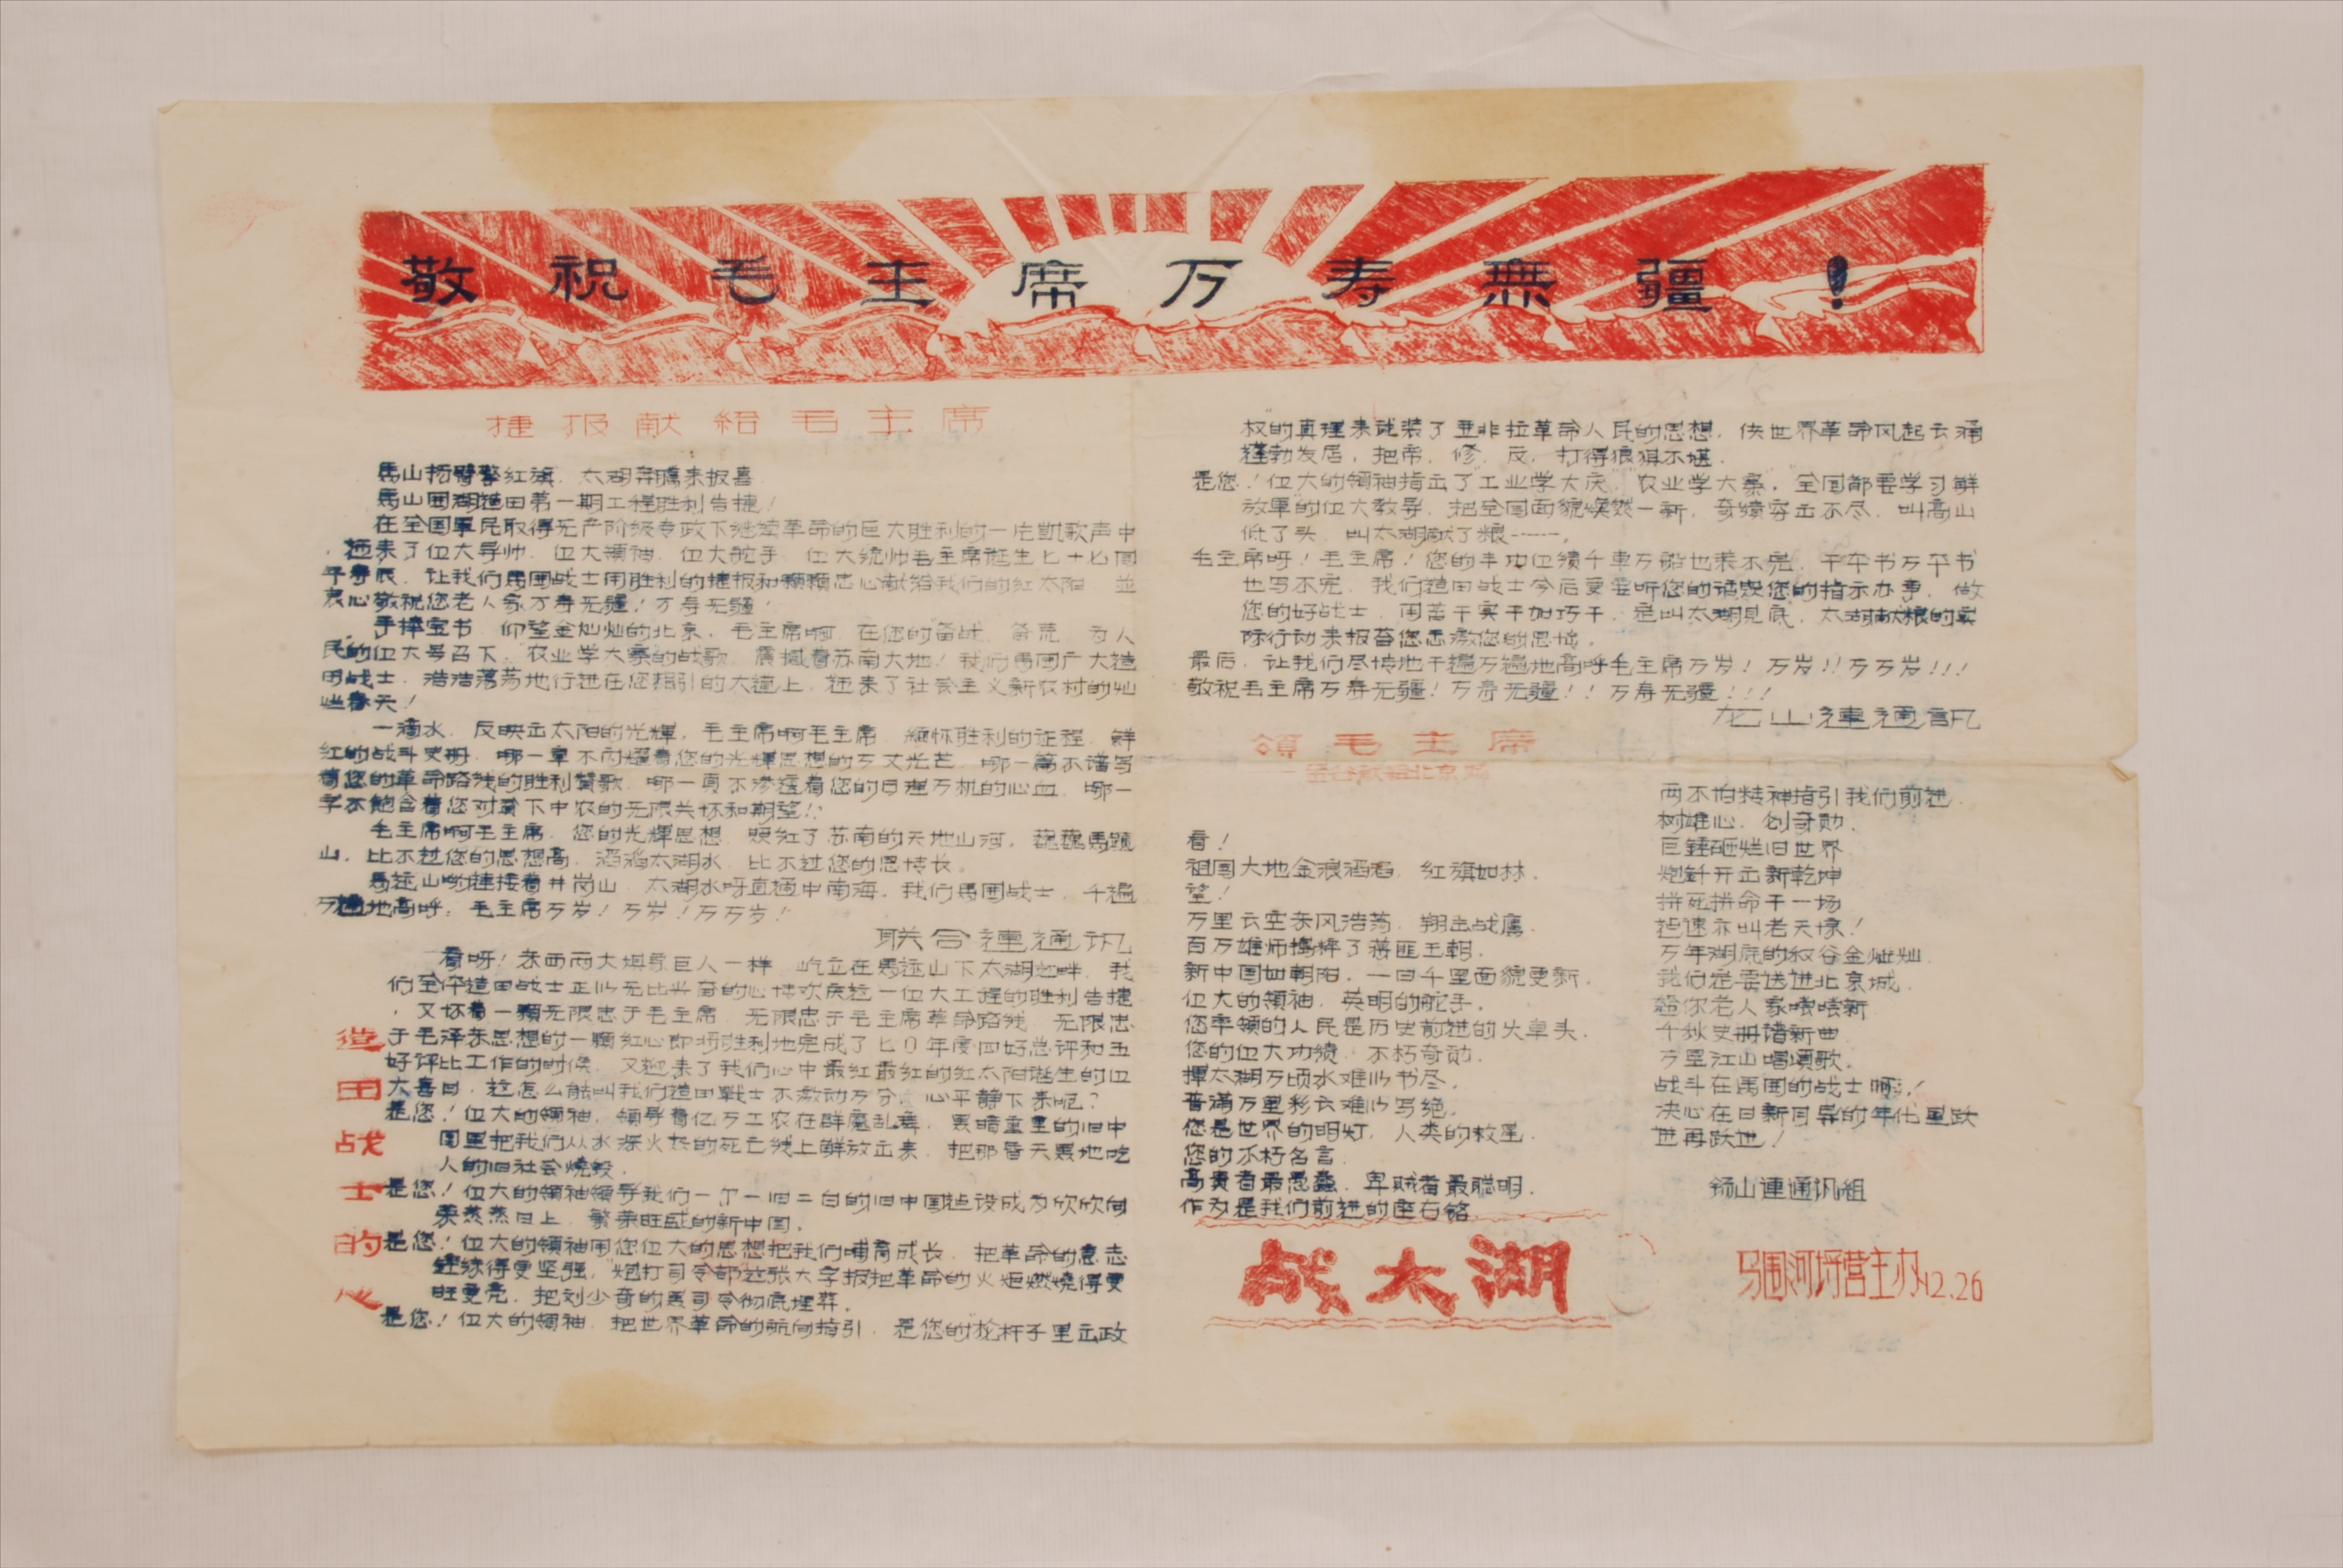 敬祝毛主席万寿無疆!
捷报献给毛主席
馬山扬臂擎红旗,太湖奔腾来报喜
馬山围湖造田第一期工程胜利告捷!
在全国军民取得无产阶级专政下继续革命的巨大胜利的一片凱歌声中
,迎来了伟大导师、伟大领袖、伟大舵手、伟大统帅毛主席诞生七十七周
年寿辰,让我们馬围战士用胜利的捷报和颗颗忠心献给我们的红太阳,並
衷心敬祝您老人家万寿无疆!万寿无疆!
手捧宝书,仰望金灿灿的北京,毛主席啊,在您的"备战、备荒、为人
民的伟大号召下,"农业学大寨"的战歌,震撼着苏南大地!我们馬围广大造
田战士,浩浩荡荡地行进在您指引的大道上,迎来了社会主义新农村的灿
烂春天!
一滴水,反映出太阳的光輝,毛主席啊毛主席,缅怀胜利的征程,鲜
红的战斗史册,哪一章不闪耀着您的光輝思想的万丈光芒,哪一篇不谱写
着您的革命路线的胜利赞歌,哪一頁不渗透着您的日理万机的心血,哪一
字不飽含着您对貧下中农的无限关怀和期望!
毛主席啊毛主席,您的光輝思想,照红了苏南的天地山河,巍巍馬蹟
山,比不过您的思想高,滔滔太湖水,比不过您的恩情长。
馬迹山啲連接着井岗山,太湖水呀直通中南海,我们馬围战士,千遍
万遍地高呼:毛主席万岁!万岁!万万岁!
联合連通讯
造田战士的心
看呀!东西两大坝象巨人一样,屹立在馬迹山下太湖之畔,我
们全体造田战士正以无比兴奋的心情欢庆这一伟大工程的胜利告捷
,又怀着一颗无限忠于毛主席,无限忠于毛主席革命路线,无限忠
于毛泽东思想的一颗红心即将胜利地完成了七0年度四好总评和五
好评比工作的时候,又迎来了我们心中最红最红的红太阳诞生的伟
大喜日,这怎么能叫我们造田戰士不激动万分,心平静下来呢?
是您!伟大的领袖,领导着亿万工农在群魔乱舞,黑暗重重的旧中
国里把我们从水深火热的死亡线上解放出来,把那昏天黑地吃
人的旧社会燒毁,
是您!伟大的領袖領导我们一尔一旧二白的旧中国建设成为欣欣向
荣蒸蒸日上,繁荣旺盛的新中国。
是您!伟大的领袖用您伟大的思想把我们哺育成长,把革命的意志
鍛练得更坚强,"炮打司令部"这张大字报把革命的火炬燃燒得更
旺更亮,把刘少奇的黑司令彻底埋葬。
是您!伟大的领袖,把世界革命的航向指引,是您的"枪杆子里出政
权"的真理来武装了亚非拉革命人民的思想,使世界革命风起云涌
蓬勃发展,把帝、修、反,打得狼狽不堪。
是您!伟大的领袖指出了"工业学大庆","农业学大寨","全国都要学习解
放軍"的伟大教导,把全国面貌焕然一新,奇績穷出不尽,叫高山
低了头,叫太湖献了粮……。
毛主席呀!毛主席!您的丰功伟績千車万船也乘不完,千车书万车书
也写不完,我们造田战士今后更要听您的话照您的指示办事,做
您的好战士,用苦干实干加巧干,定叫太湖見底,太湖献粮的实
际行动来报答您感激您的恩情。
最后,让我们尽情地千遍万遍地高呼毛主席万岁!万岁!!万万岁!!!
敬祝毛主席万寿无疆!万寿无疆!!万寿无疆!!!
龙山連通訊
領毛主席
看!
祖国大地金浪滔滔,红旗如林,
望!
万里长空东风浩荡,翔出战鹰,
百万雄师搗碎了蒋匪王朝,
新中国如朝阳,一日千里面貌更新,
伟大的領袖,英明的舵手,
您率领的人民是历史前进的火車头,
您的伟大功績,不朽奇勋,
揮太湖万顷水难以书尽,
普满万里彩云难以写绝,
您是世界的明灯,人类的救星,
您的不朽名言
高貴者最愚蠢,卑贱者最聪明,
作为是我们前进的座右铭,
两不怕精神指引我们前进,
树雄心,创奇勋,
巨錘砸烂旧世界
炮釬开出新乾坤
拼死拼命干一场
超速亦叫老天惊!
万年湖底的稻谷金灿灿
我们定要送进北京城,
给你老人家嚐嚐新
千秋史册谱新曲
万里江山唱頌歌,
战斗在馬围的战士啊!
决心在日新月异的年代里跃
进再跃进!
錫山連通讯組
战太湖
马围河埒营主办12.26